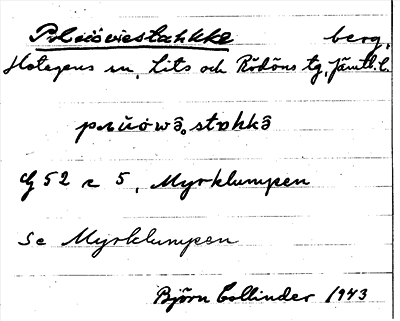 berg,
Hotagens sn, Lits och Rödöns tg, Jämtl. l.
G 52 r 5, Myrklumpen
Se Myrklumpen
Björn Collinder 1943